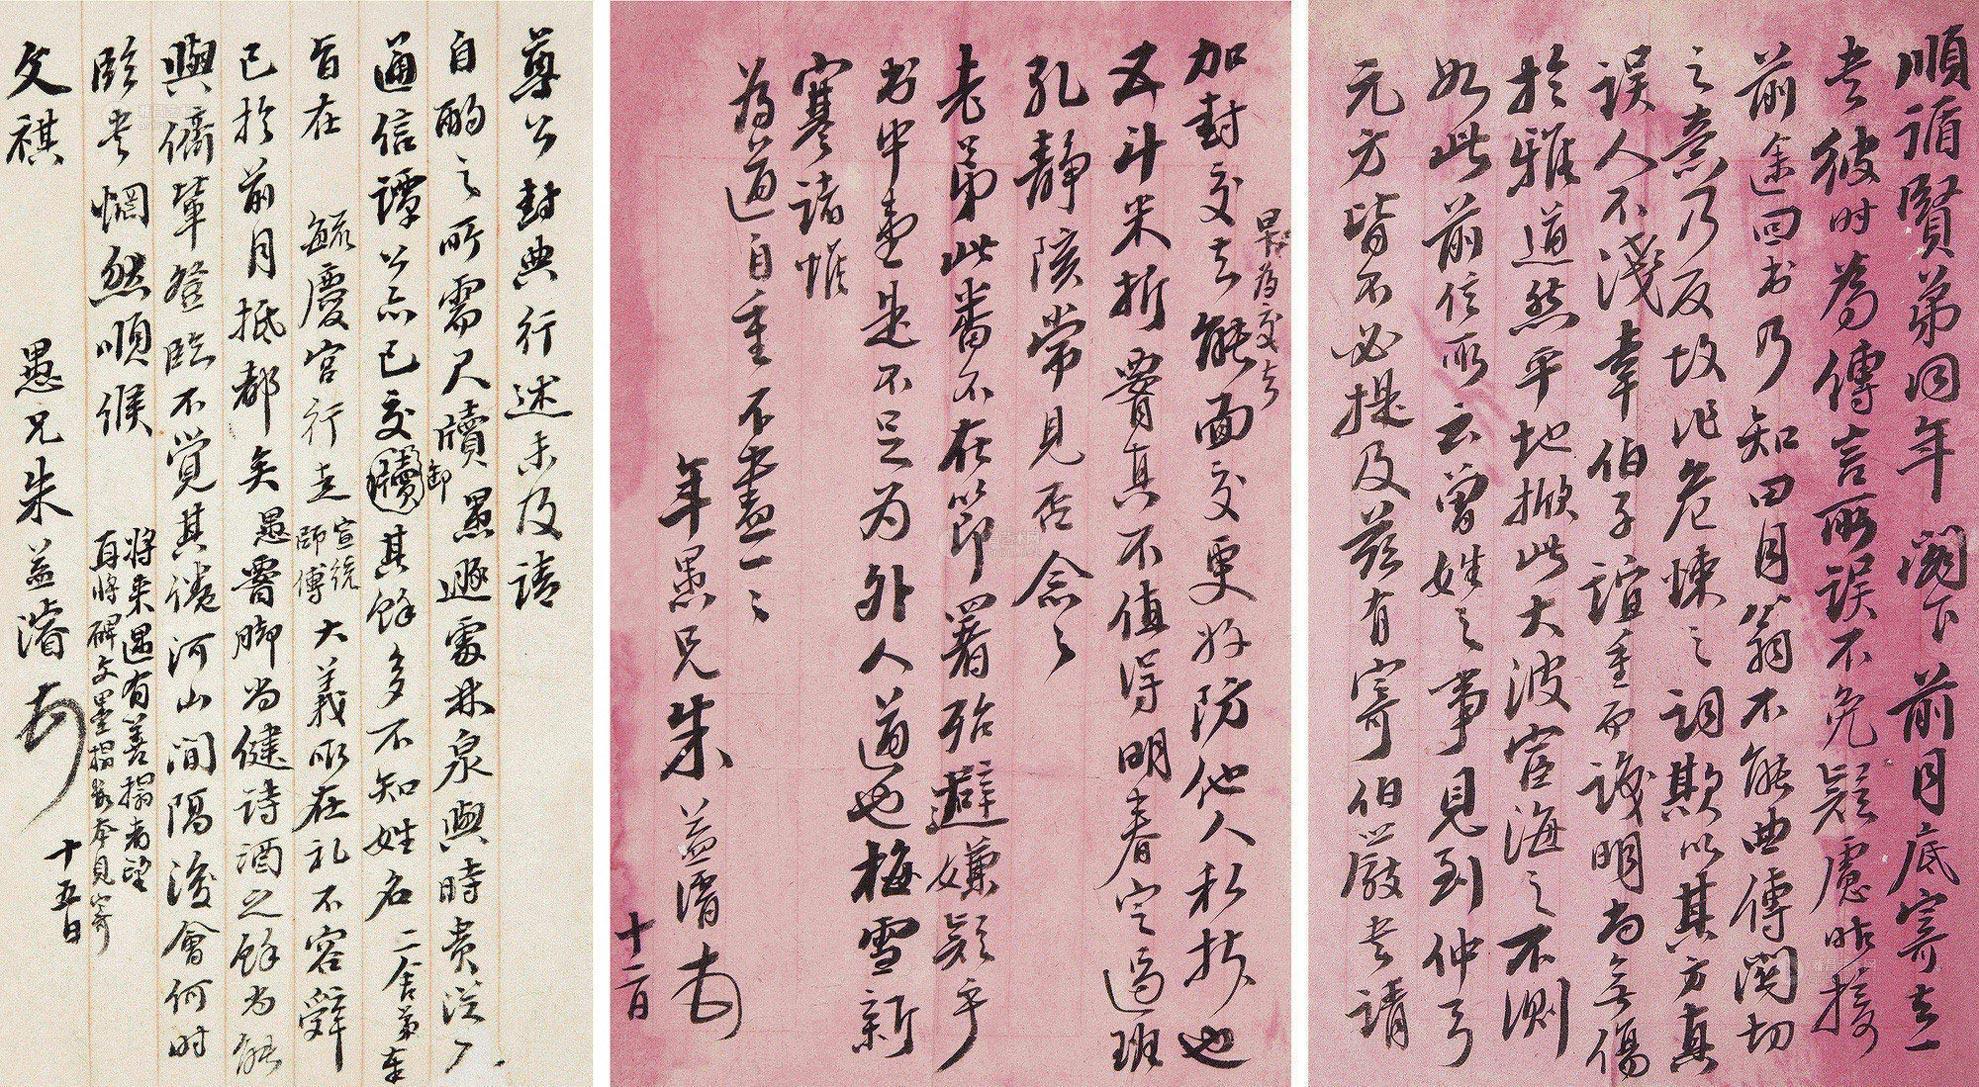 順循賢弟同年閣下前月底寄去一
書彼時為傳言所誤不免疑慮昨接
前途回书乃知田月翁不能曲傳閣切
之意乃反故作危悚之詞欺以其方真
誤人不淺幸伯子誼重而識明尚無傷
於雅道然平地掀此大波宦海之不測
如此前信所云曾姓之事見到仲弓
元方皆不必提及茲有寄伯嚴書請
加封交去能面交更好防他人私拆也
早為交去
五斗米折腰真不值得明春定過班
孔靜陔常見否念之
老弟此番不在節署殆避嫌疑乎
书中書是不足为外人道也梅雪新
寒諸惟
為道自重不盡一一
年愚兄朱益濬頓
十二日
尊公封典行述未及請
自酌之所需尺牘愚遯處林泉與時貴從少
卸
通信譚公亦已交牘其餘多不知姓名二舍弟奉
旨在 毓慶宮行走宣統師傅大義所在礼不容辭
已於前月抵都矣愚腰脚尚健詩酒之餘尚能
與儕輩登臨不覺其憊河山間隔後會何時
臨书惘然順候
文祺 愚兄朱益濬頓
將來遇有善搨者望
再將碑文墨搨數本見寄
十五日